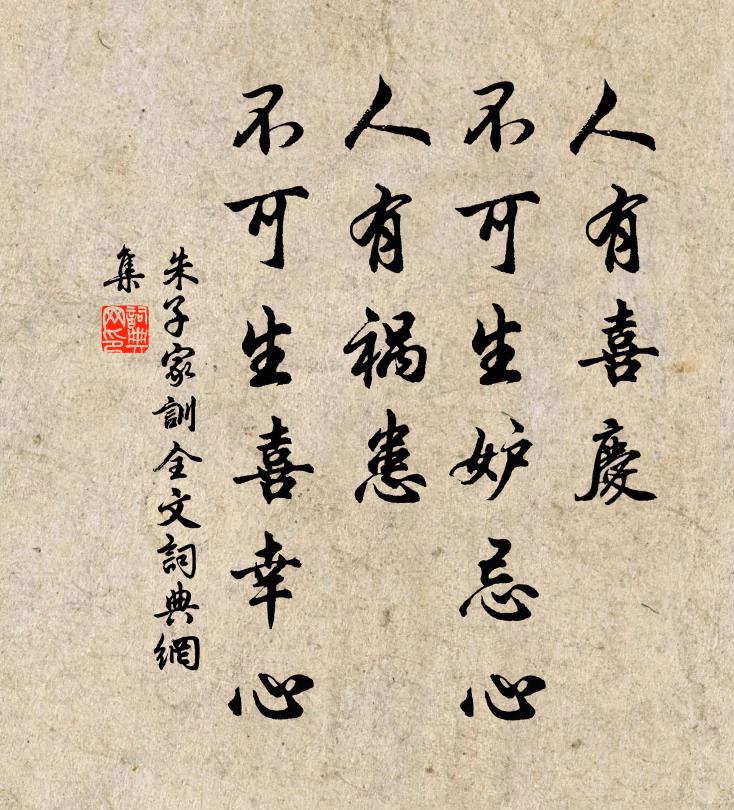 人有喜慶
不可生妒忌心
人有祸患
不可生喜幸心
朱子家訓全文詞典網
集
詞典
网印